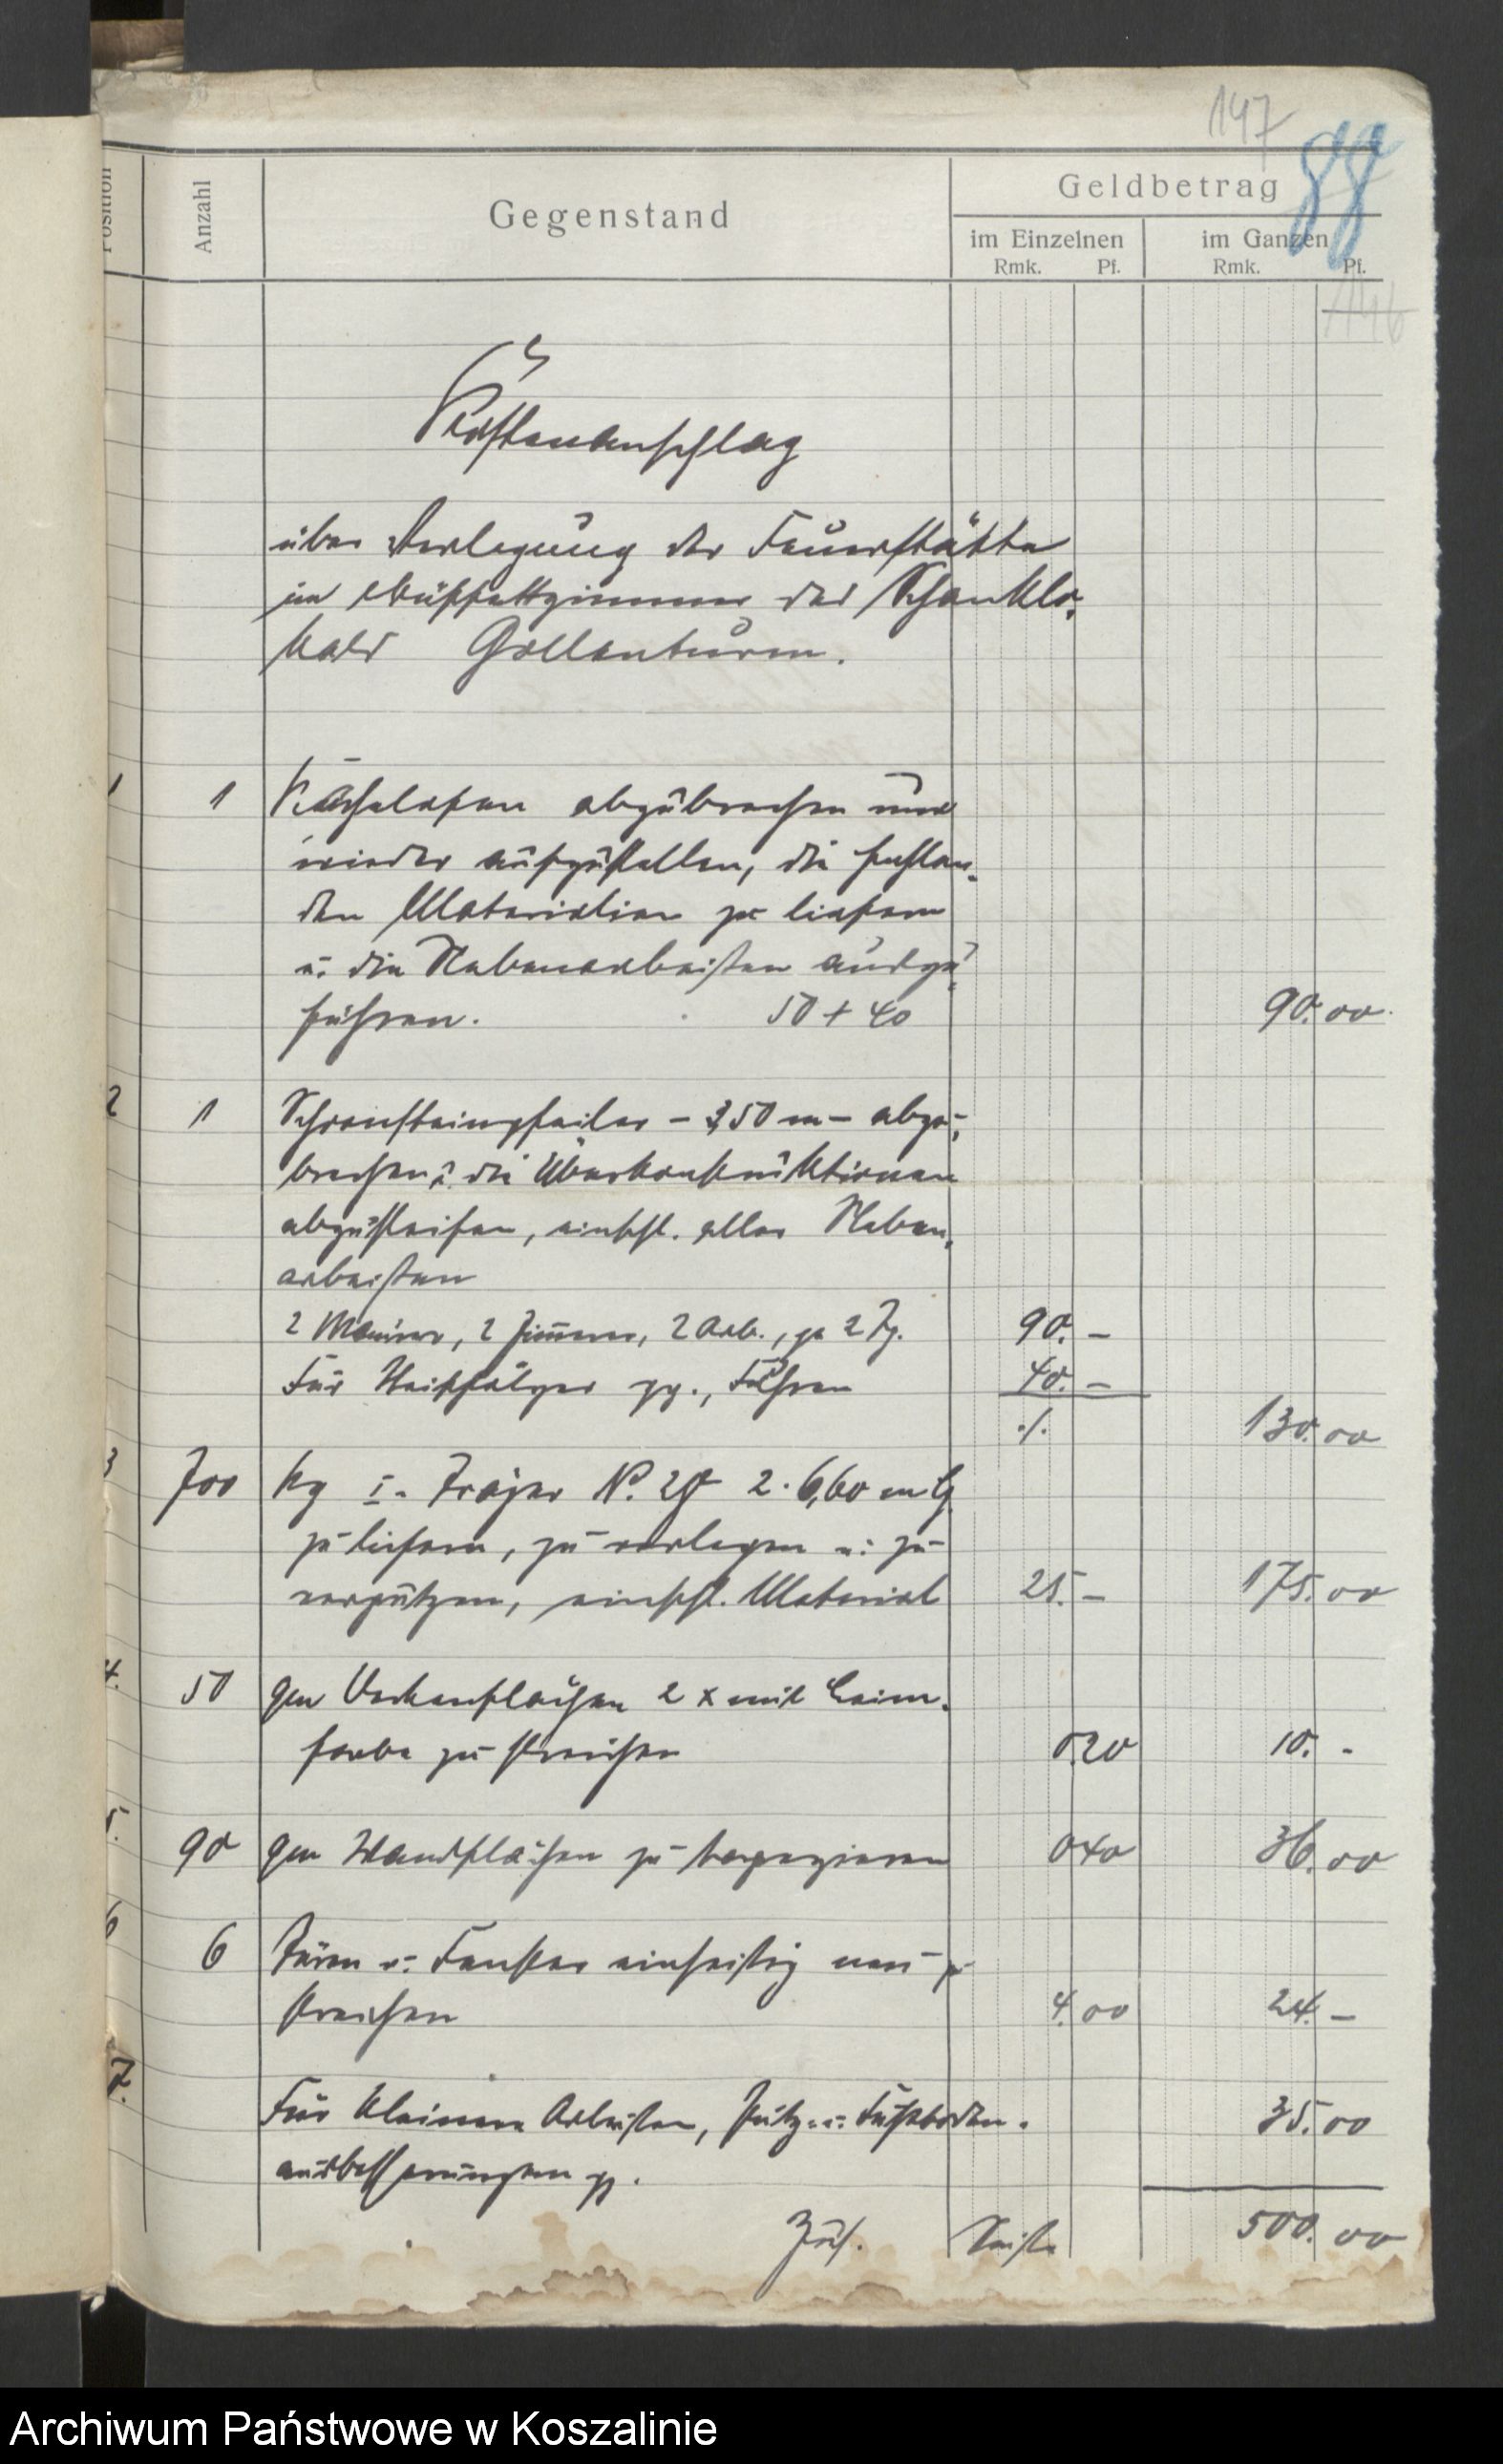 147
88
Position Anzahl Gegenstand Geldbetrag
im Einzelnen im Ganzen
Rmk. Pf. Rmk. Pf.
146
Kostenanschlag
über Verlegung der Feuerstätte
im Büffettzimmer des Schanklo-
kals Gollenturm.
1 1 Kachelofen abzubrechen und
wieder aufzustellen, die fehlen-
den Materialien zu liefern
u. die Nebenarbeiten auszu-
führen. 50 + 40 90.00.
2 1 Schornsteinpfeiler – 3,50 m – abzu-
brechen u. die Überkonstruktionen
abzusteifen, einschl. aller Neben-
arbeiten
2 Maurer, 2 Zimmer, 2 Arb., je 2 Tg. 90. –
Für Steifhölzer pp., Fuhren 40. –
./. 130.00
3 700 kg I- Träger N. 2 · 6,60 m lg
zu liefern, zu verlegen u. zu
verputzen, einschl. Material 25. – 175.00
4. 50 qm Deckenflächen 2 x mit Leim-
farbe zu streichen 0.20 10. -
5. 90 qm Wandflächen zu tapezieren 0.40 36.00
6 6 Türen u. Fenster einseitig neu zu
streichen 4.00 24. –
7. Für kleinere Arbeiten, Putz- u. Fußboden- 35.00
ausbesserungen pp.
Zus. Seite 500.00
Archiwum Państwowe w Koszalinie